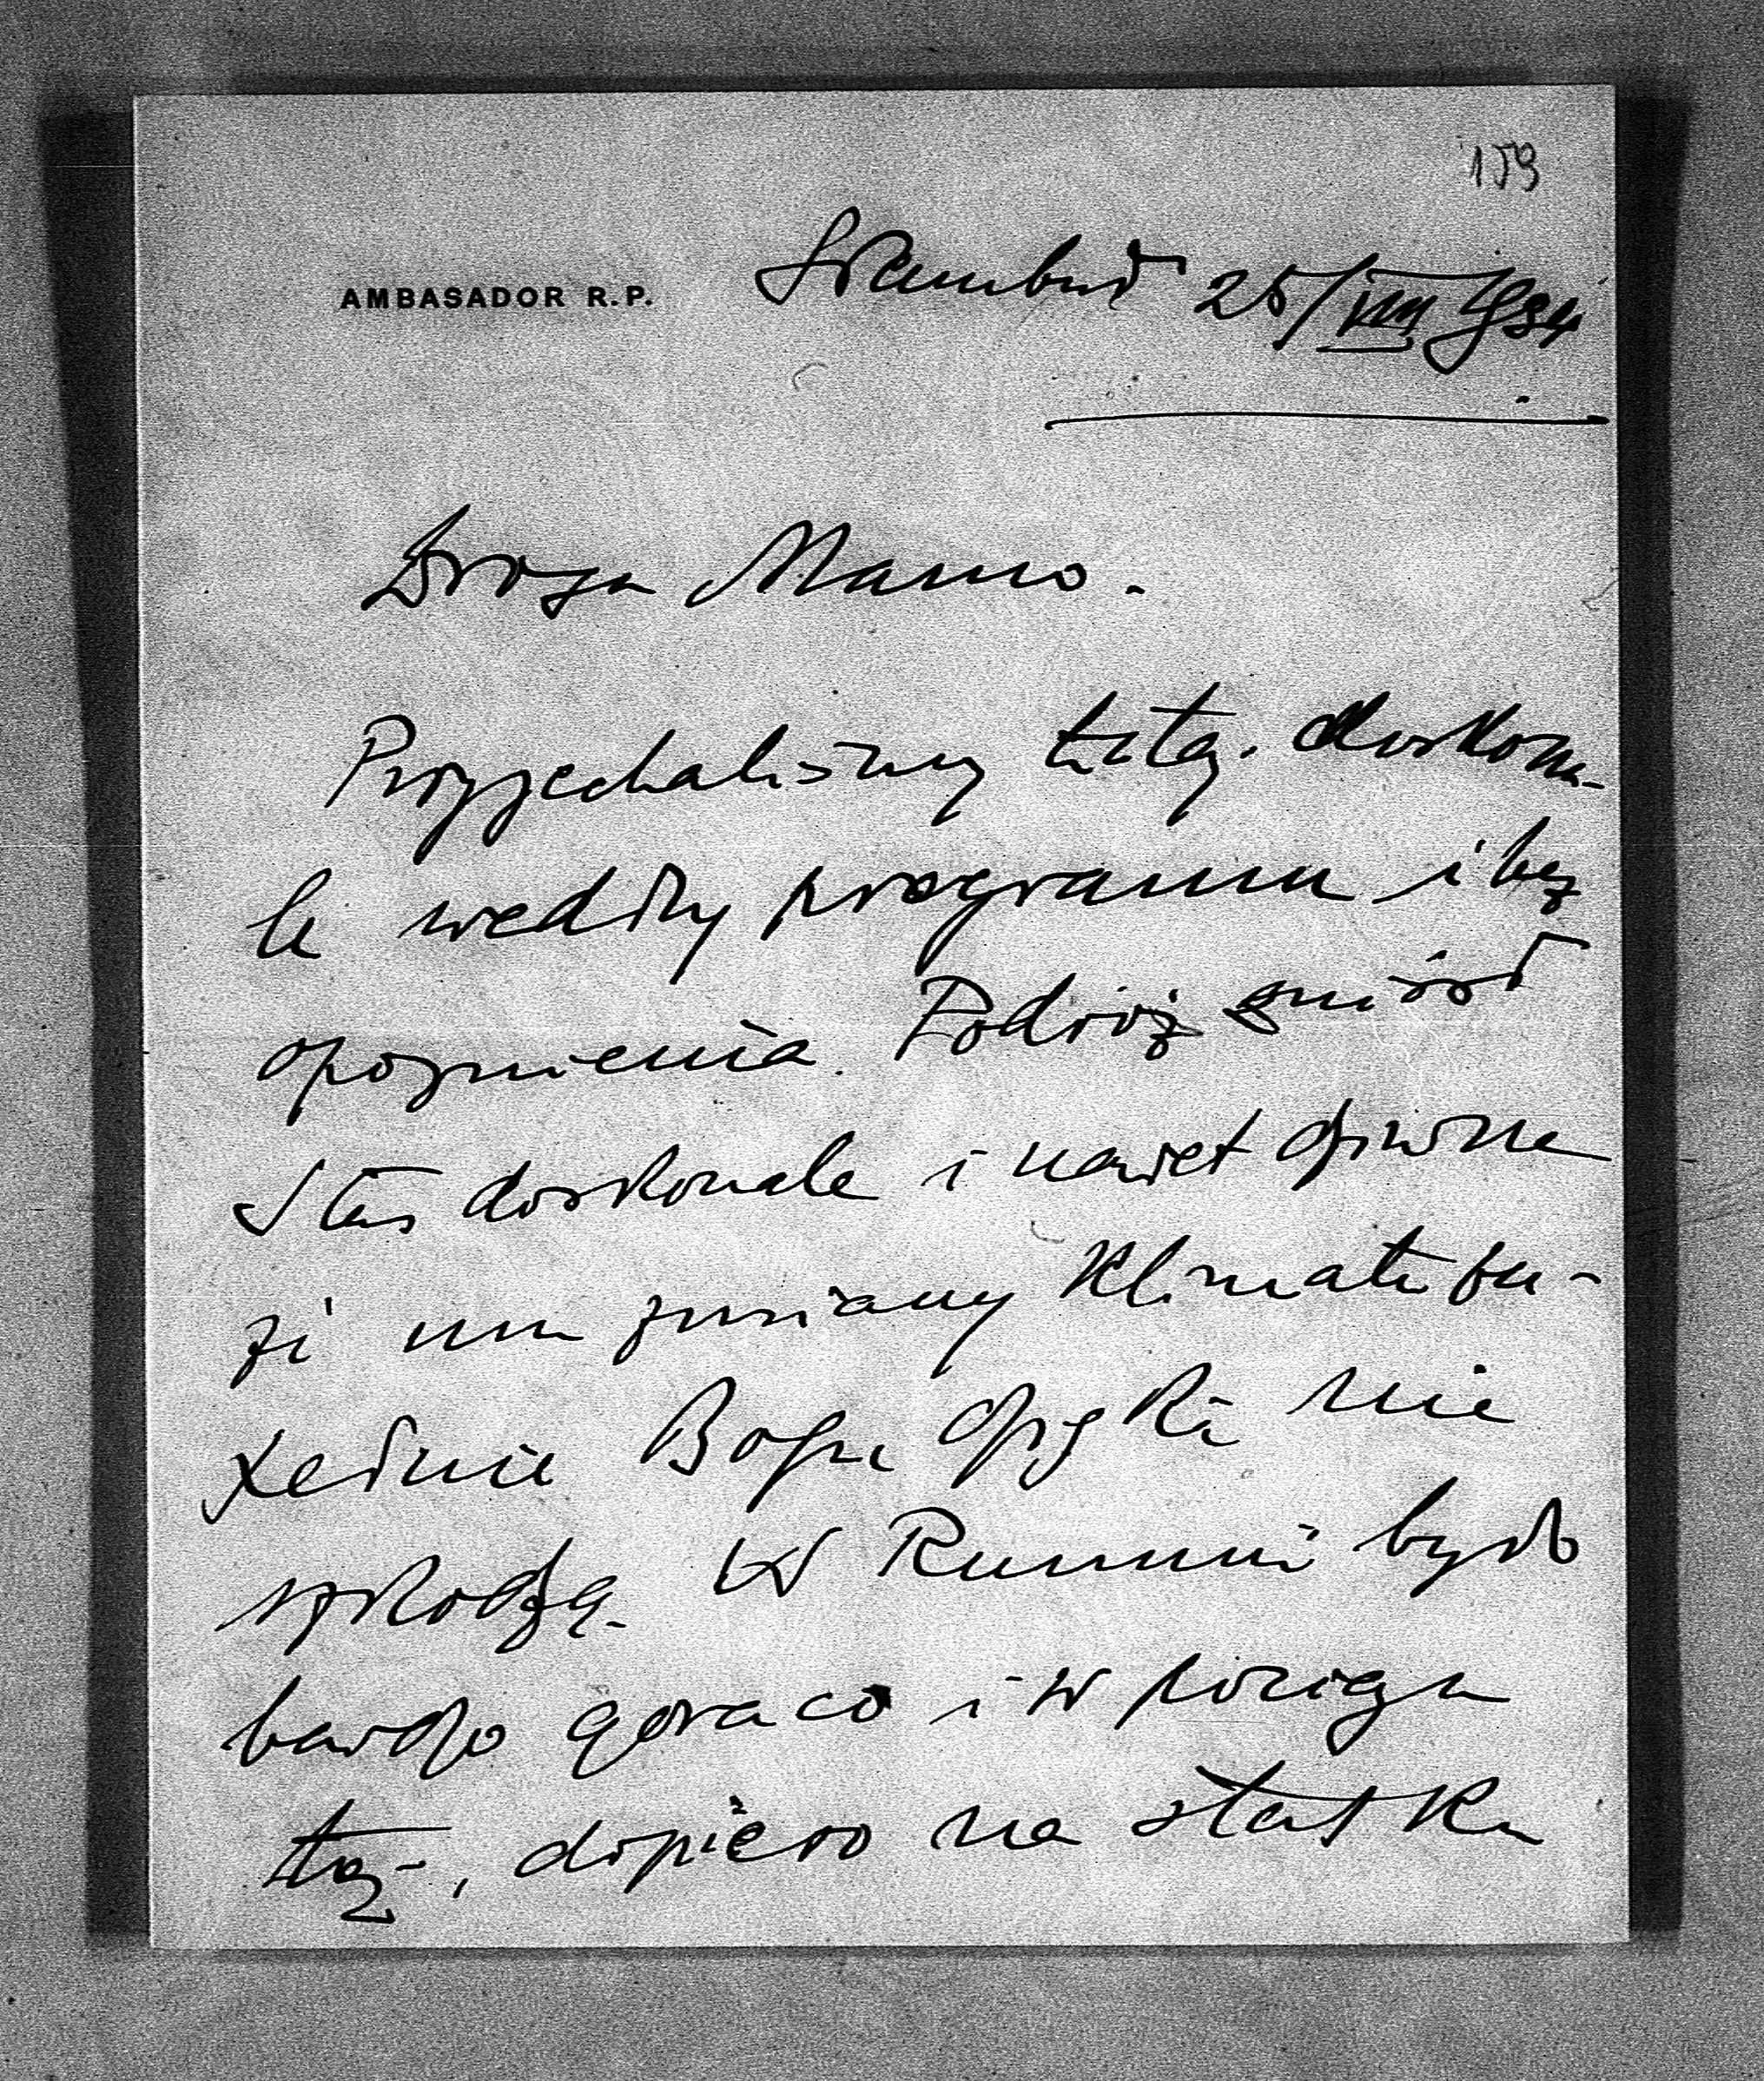 159
AMBASADOR R.P. Stambuł 25/VIII 1934
Droga Mamo.
Przyjechaliśmy tutaj doskona-
le według programu i bez
opoznienia. Podróż zniósł
Staś doskonale i nawet
zi mu zmiany klimatu zu-
xełnie Bogu Dzięki nie
szkodzą. W Rumunii było
bardzo gorąco i w pociągu
też, dopiero na statku